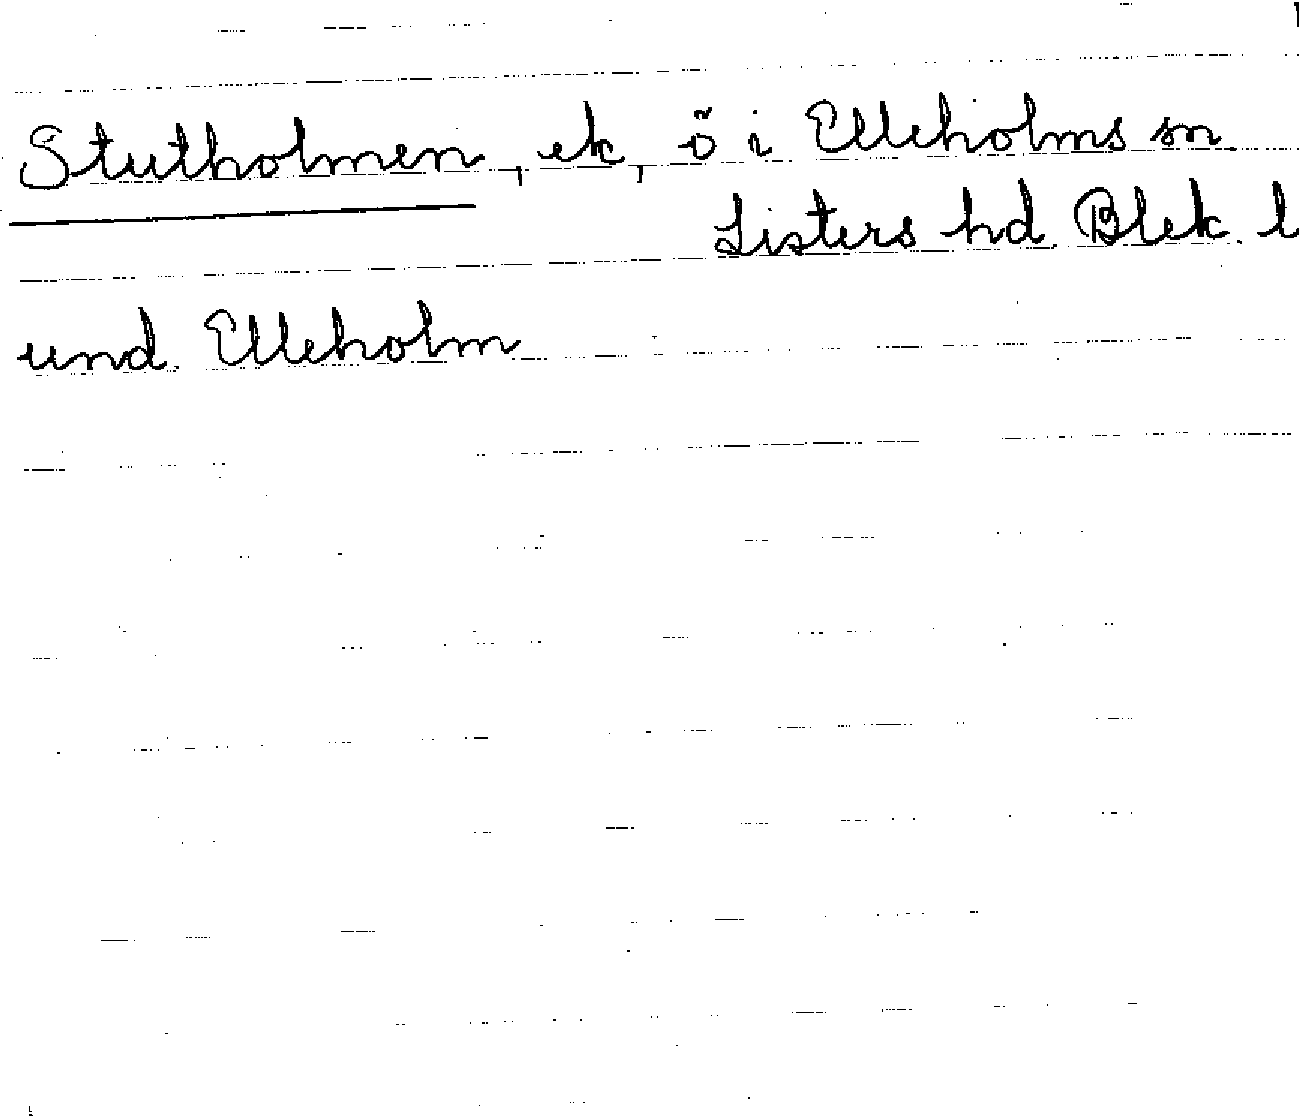 Stutholmen, ek, ö i Elleholms sn.
Listers hd Blek. l
und. Elleholm